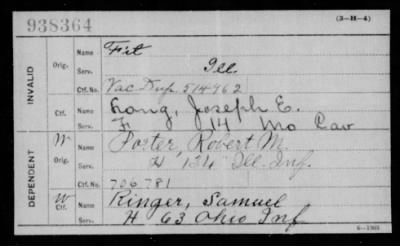 938364
(3-H-4)
INVALID
Orig.
Name Fit
Serv. Ill.
Ctf. No. Vac. Dup. 514962
Ctf.
Name Long, Joseph E.
Serv. F 14 Mo Cav
DEPENDENT
W
Orig.
Name Porter, Robert M.
Serv. H 124 Ill. Inf.
Ctf. No. 706781
W
Ctf.
Name Ringer, Samuel
Serv. H 63 Ohio Inf